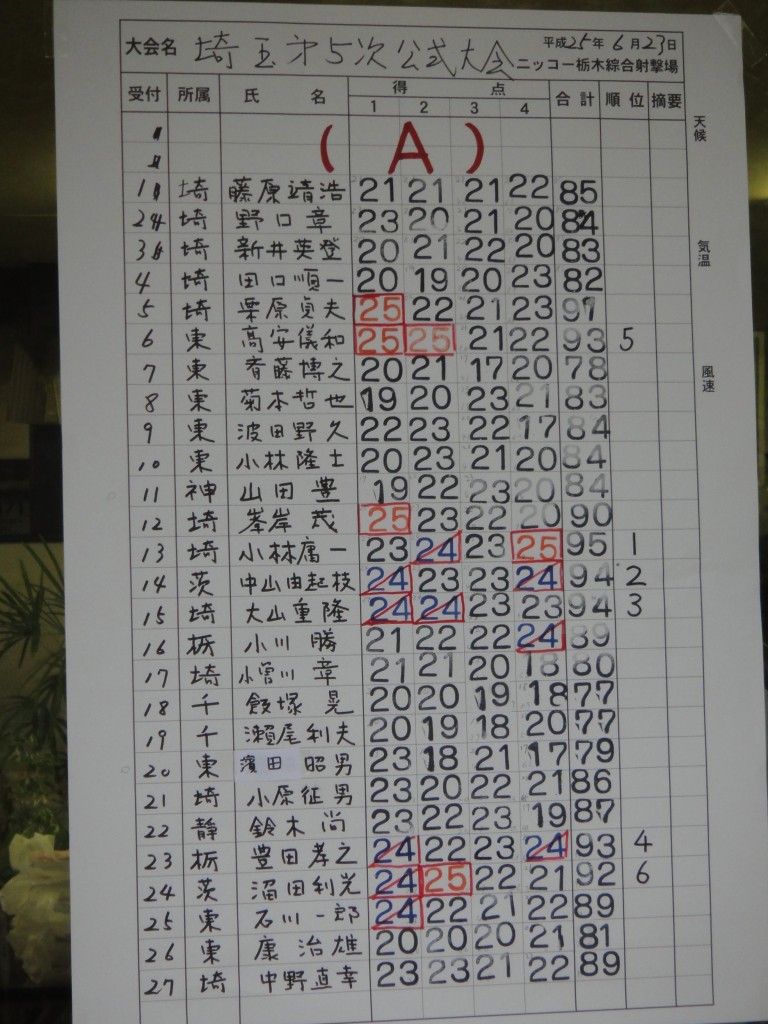 大会名 埼玉第5次公式大会 平成25年6月23日
ニッコー栃木綜合射撃場
受付 所属 氏名 得点 合計 順位 摘要
1 2 3 4
天候
(A)
1 埼 藤原靖浩 21 21 21 22 85
2 埼 野口章 23 20 21 20 84
3 埼 新井英登 20 21 22 20 83
気温
4 埼 田口順一 20 19 20 23 82
5 埼 栗原貞夫 25 22 21 23 91
6 東 高安儀和 25 25 21 22 93 5
7 東 斉藤博之 20 21 17 20 78
風速
8 東 菊本哲也 19 20 23 21 83
9 東 波田野久 22 23 22 17 84
10 東 小林隆士 20 23 21 20 84
11 神 山田豊 19 22 23 20 84
12 埼 峯岸茂 25 23 22 20 90
13 埼 小林庸一 23 24 23 25 95 1
14 茨 中山由起枝 24 23 23 24 94 2
15 埼 大山重隆 24 24 23 23 94 3
16 栃 小川勝 21 22 22 24 89
17 埼 小曽川章 21 21 20 18 80
18 千 飯塚晃 20 20 19 18 77
19 千 瀬尾利夫 20 19 18 20 77
20 東 濱田昭男 23 18 21 17 79
21 埼 小原征男 23 20 22 21 86
22 静 鈴木尚 23 22 23 19 87
23 栃 豊田孝之 24 22 23 24 93 4
24 茨 沼田利光 24 25 22 21 92 6
25 東 石川一郎 24 22 21 22 89
26 東 康治雄 20 20 20 21 81
27 埼 中野直幸 23 23 21 22 89